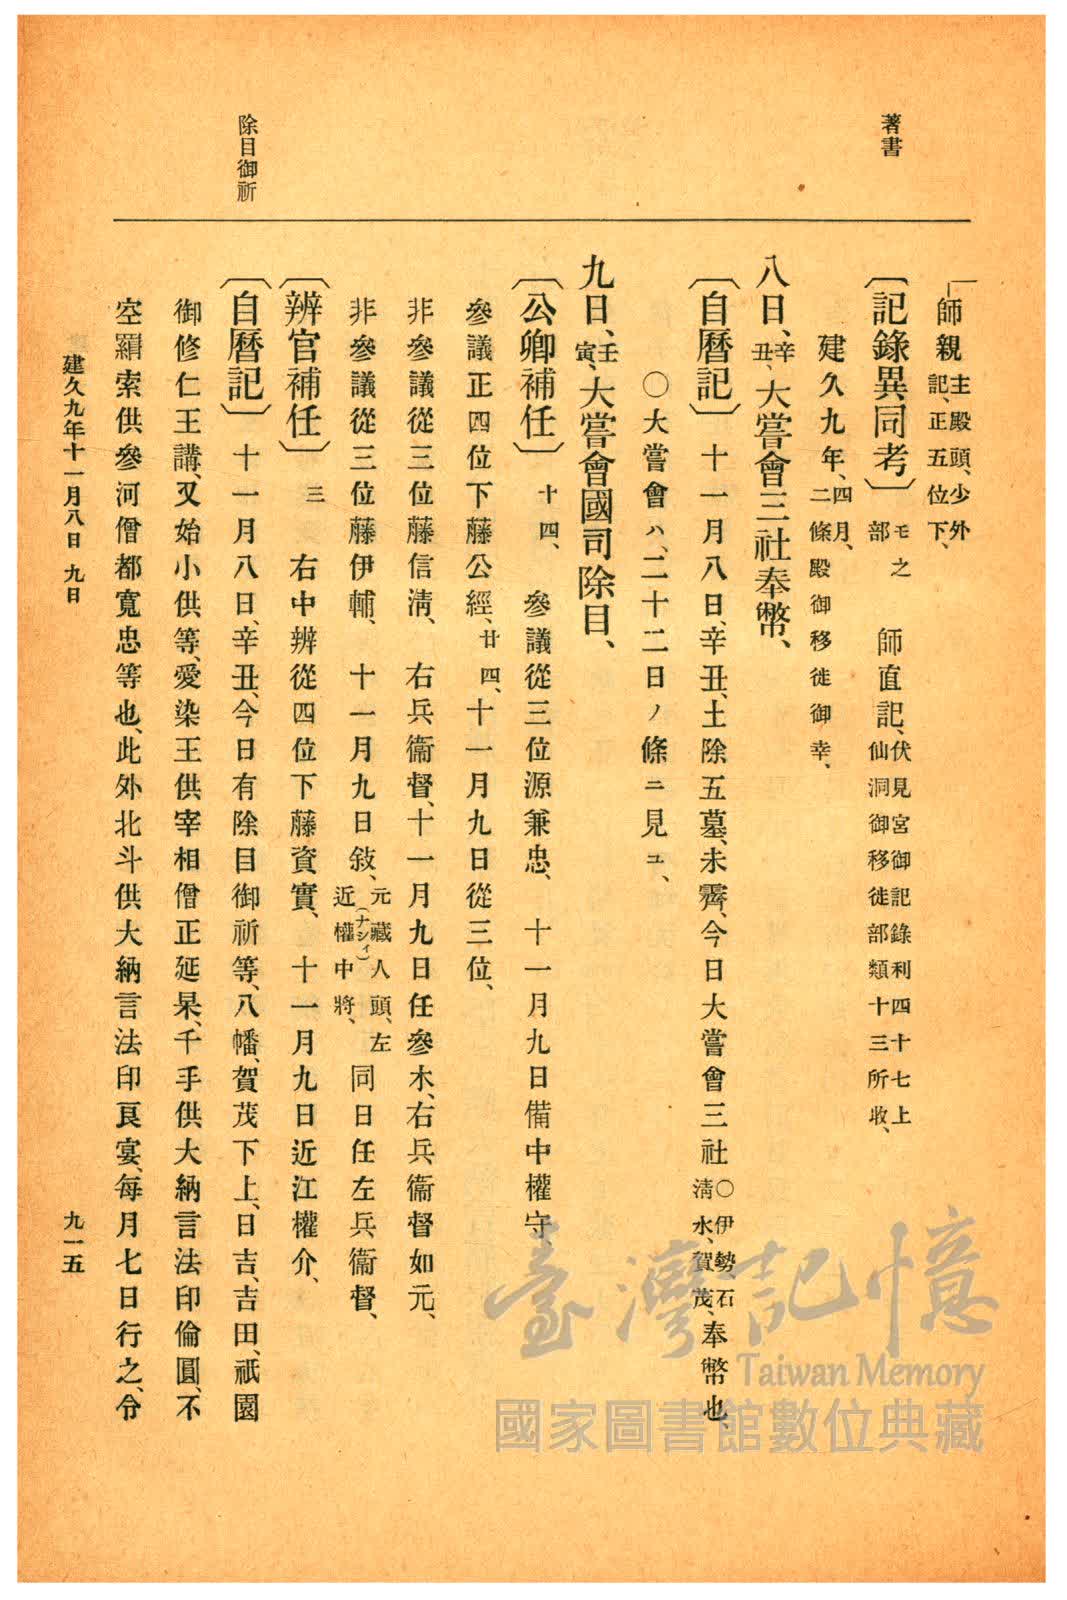 著書
除目御祈
師親 主殿頭、少外記、正五位下、
〔記錄異同考〕 モ之部 師直記、伏見宮御記錄利四十七上仙洞御移徙部類十三所收、
建久九年、四月、二條殿御移徙御幸、
八日、辛丑、大嘗會三社奉幣、
〔自曆記〕 十一月八日、辛丑、土除五墓、未霽、今日大嘗會三社 〇伊勢、石清水、賀茂、 奉幣也、
〇大嘗會ハ、二十二日ノ條ニ見ユ、
九日、壬寅、大嘗會國司除目、
〔公卿補任〕 十四、 參議從三位源兼忠、 十一月九日備中權守、
參議正四位下藤公經、廿四、十一月九日從三位、
非參議從三位藤信淸、 右兵衞督、十一月九日任參木、右兵衞督如元、
非參議從三位藤伊輔、 十一月九日敍、元藏人頭、左近權(ナシイ)中將、 同日任左兵衞督、
〔辨官補任〕 三 右中辨從四位下藤資實、 十一月九日近江權介、
〔自曆記〕 十一月八日、辛丑、今日有除目御祈等、八幡、賀茂下上、日吉、吉田、祇園
御修仁王講、又始小供等、愛染王供宰相僧正延杲、千手供大納言法印倫圓、不
空羂索供參河僧都寬忠等也、此外北斗供大納言法印良宴、每月七日行之、令
建久九年十一月八日 九日
九一五
臺灣記憶
Taiwan Memory
國家圖書館數位典藏